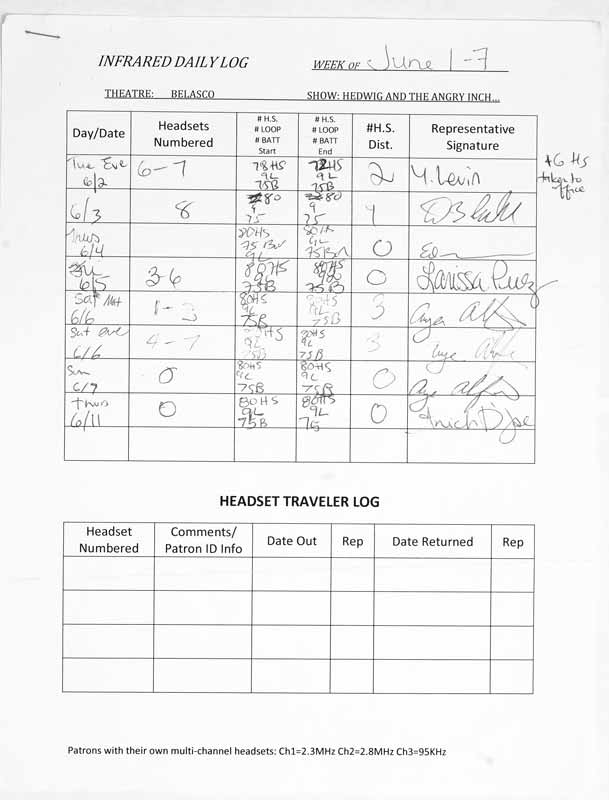 INFRARED DAILY LOG WEEK OF June 1-7
THEATRE: BELASCO SHOW: HEDWIG AND THE ANGRY INCH...
Day/Date Headsets Numbered # H.S. # LOOP # BATT Start # H.S. # LOOP # BATT End #H.S. Dist. Representative Signature
Tue Eve 6/2 6-7 78HS 9L 75B 72HS 9L 75B 2 Y. Levin +6 HS taken to office
6/3 8 80 9 75 80 9 75
Thus 6/4 80HS 75B 9L 80HS 9L 75B 0
6/5 3-6 80HS 9L 75B 80HS 9L 75B 0 Larissa
Sat Mat 6/6 1-3 80HS 9L 75B 80HS 9L 75B 3
Sat eve 6/6 4-7 80HS 9L 75B 80HS 9L 75B 3
Sun 6/7 0 80HS 9L 75B 80HS 9L 75B 0
Thus 6/11 0 80HS 9L 75B 80HS 9L 75 0
HEADSET TRAVELER LOG
Headset Numbered Comments/ Patron ID Info Date Out Rep Date Returned Rep
Patrons with their own multi-channel headsets: Ch1=2.3MHz Ch2=2.8MHz Ch3=95KHz